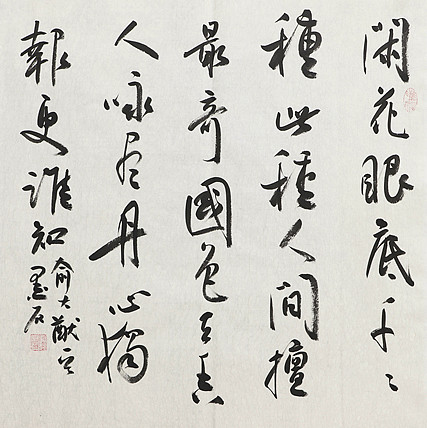 閑花眼底千々
種此種人間擅
最奇國色天香
人咏尽丹心獨
報更誰知
俞大猷
墨石